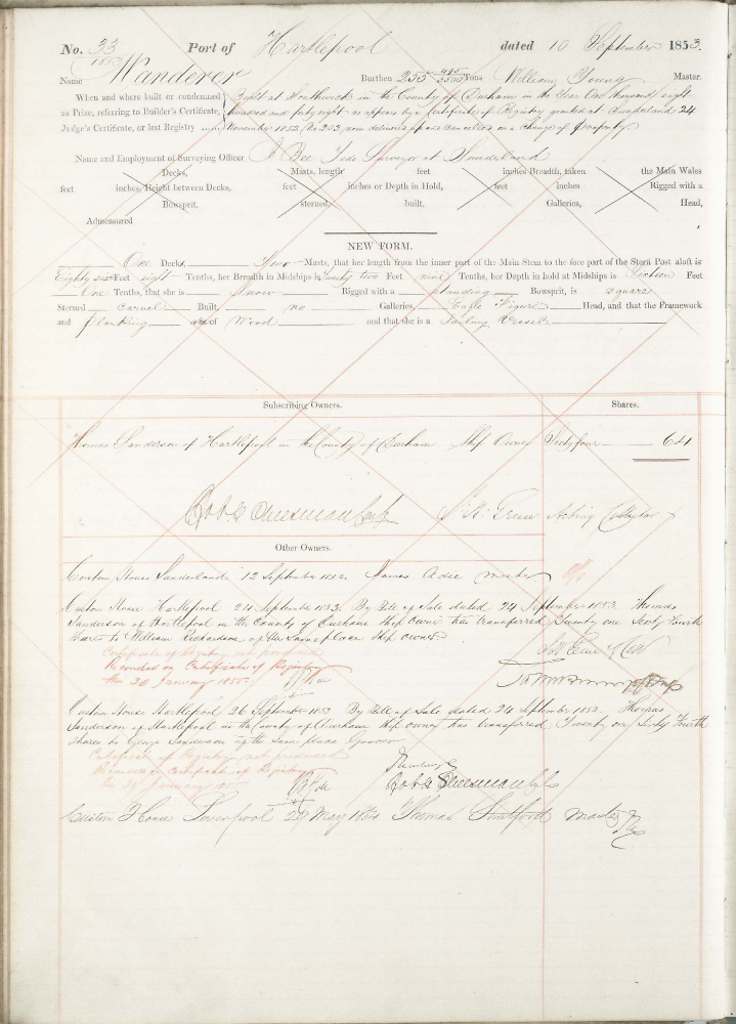 No. 33 Port of Hartlepool dated 10 September 1853.
1853
Name Wanderer Burthen 255 Tons William Young Master.
When and where built or condemned Built at Southwick in the County of Durham in the Year One thousand eight
as Prize, referring to Builder's Certificate, hundred and forty eight as appears by a Certificate of Registry granted at Sunderland 24
Judge's Certificate, or last Registry November 1852 No 253 now delivered up and cancelled on a Change of Property.
Name and Employment of Surveying Officer Bee Tide Surveyor at Sunderland
Decks, Masts, length feet inches Breadth, taken the Main Wales
feet inches Height between Decks, feet inches or Depth in Hold, feet inches Rigged with a
Bowsprit. sterned, built. Galleries, Head,
Admeasured
NEW FORM.
One Decks, Two Masts, that her length from the inner part of the Main Stem to the fore part of the Stern Post aloft is
Eighty six Feet eight Tenths, her Breadth in Midships is twenty two Feet nine Tenths, her Depth in hold at Midships is Sixteen Feet
One Tenths, that she is Snow Rigged with a standing Bowsprit, is square
Sterned Carvel Built no Galleries, Figure Head, and that the Framework
and planking are of Wood and that she is a Sailing Vessel
Subscribing Owners. Shares.
Thomas Sanderson of Hartlepool in the County of Durham Ship Owner Sixty four 64
Robt G Cheesman Clerk Acting Collector
Other Owners.
Custom House Sunderland 12 September 1853. James Adie Master
Custom House Hartlepool 24 September 1853. By Bill of Sale dated 24 September 1853. Thomas
Sanderson of Hartlepool in the County of Durham Ship Owner has transferred Twenty one Sixty Fourth
Shares to William Richardson of the same place Ship Owner
Certificate of Registry not produced
Recorded on Certificate of Registry
the 20 January 1855.
Custom House Hartlepool 26 September 1853 By Bill of Sale dated 24 September 1853. Thomas
Sanderson of Hartlepool in the County of Durham Ship Owner has transferred Twenty one Sixty Fourth
Shares to George Sanderson of the same place
Certificate of Registry not produced
Recorded on Certificate of Registry
the January
Robt G Cheesman
Custom House Liverpool 29 May 1854 Thomas Master